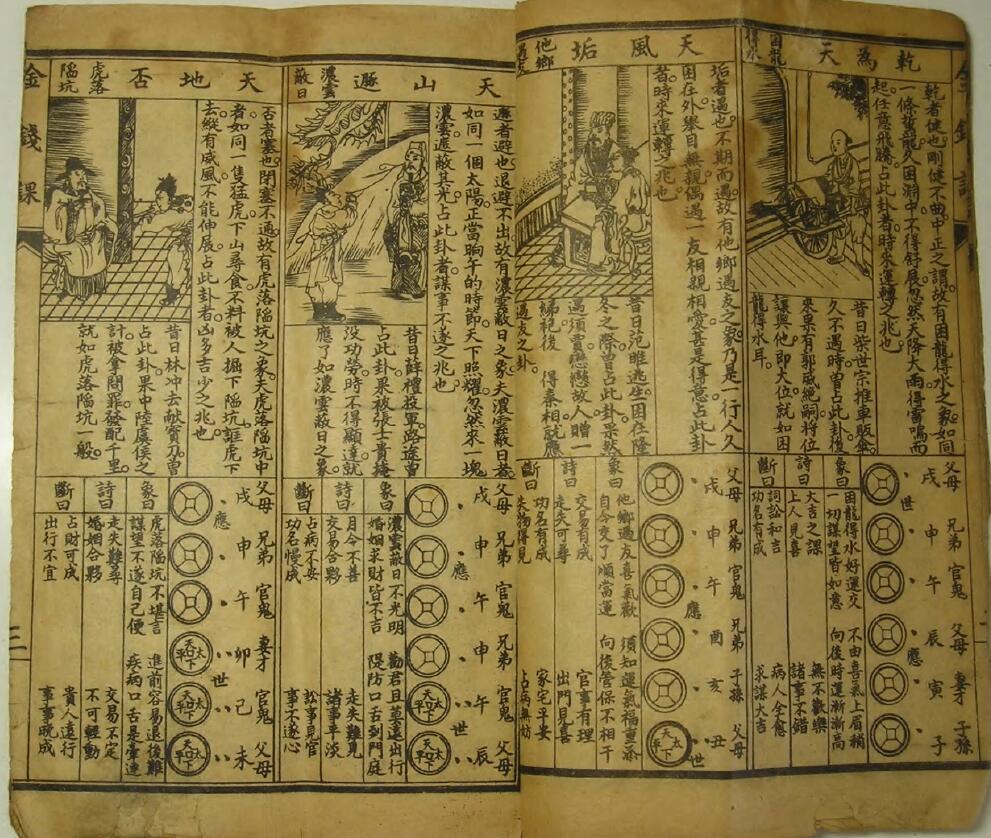 乾為天
困龍得水
乾者健也剛健不曲中正之謂故有困龍得水之象如同
一條蟄龍久困淵中不得舒展忽然天降大雨得雷鳴而
起任意飛騰占此卦者時來運轉之兆也
昔日柴世宗推車販傘
久不遇時曾占此卦後
來果有郭威絕嗣將位
讓與他即大位就如困
龍得水耳
父母 戌 世
兄弟 申
官鬼 午
父母 辰 應
妻才 寅
子孫 子
象曰
困龍得水好運交 不由喜氣上眉稍
一切謀望皆如意 向後時運漸漸高
詩曰
大吉之課 無不歡樂
上人見喜 諸事不錯
斷曰
詞訟和吉 病人全愈
功名有成 求謀大吉
天風垢
他鄉遇友
垢者遇也不期而遇故有他鄉遇友之象乃是一行人久
困在外舉目無親偶遇一友相親相愛喜是得意占此卦
者時來運轉之兆也
昔日范雎逃生困在隆
冬之際曾占此卦果然
遇須賈戀戀故人贈一
綈袍後 得秦相就應
遇友之卦
父母 戌
兄弟 申
官鬼 午 應
兄弟 酉
子孫 亥
父母 丑 世
天下太平
象曰
他鄉遇友喜氣歡 須知運氣福重添
自今交了順當運 向後管保不相干
詩曰
交易有成 官事有理
走失可尋 出門見喜
斷曰
功名有成 家宅平安
失物得見 占病無妨
天山遯
濃雲蔽日
遯者避也退避不出故有濃雲蔽日之象夫濃雲蔽日者
如同一個太陽正當晌午的時節天下照耀忽然來一塊
濃雲遮蔽其光占此卦者謀事不遂之兆也
昔日薛禮投軍路途曾
占此卦果被張士貴掩
沒功勞時不得顯達就
應了如濃雲蔽日之象
父母 戌
兄弟 申 應
官鬼 午
兄弟 申
官鬼 午 世
父母 辰
天下太平
天下太平
象曰
濃雲蔽日不光明 勸君且莫遠出行
婚姻求財皆不吉 隄防口舌到門庭
詩曰
月令不善 走失難見
交易合夥 諸事平淡
斷曰
占病不安 訟事見官
功名慢成 事不遂心
天地否
虎落陷坑
否者塞也閉塞不通故有虎落陷坑之象夫虎落陷坑中
者如同一隻猛虎下山尋食不料被人掘下陷坑誆虎下
去縱有威風不能伸展占此卦者凶多吉少之兆也
昔日林冲去献寶刀曾
占此卦果中陸虞侯之
計被拿問罪發配千里
就如虎落陷坑一般
父母 戌 應
兄弟 申
官鬼 午
妻才 卯 世
官鬼 己
父母 未
天下太平
天下太平
天下太平
象曰
虎落陷坑不堪言 進前容易退後難
謀望不遂自己便 疾病口舌是牽連
詩曰
走失難尋 交易不定
婚姻合夥 不可輕動
斷曰
占財可成 貴人遠行
出行不宜 事事晚成
金錢課
三